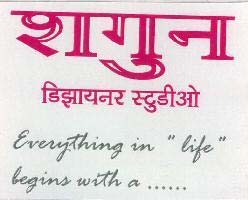 शगुन
डिझायनर स्टुडीओ
Everything in " life "
begins with a ......